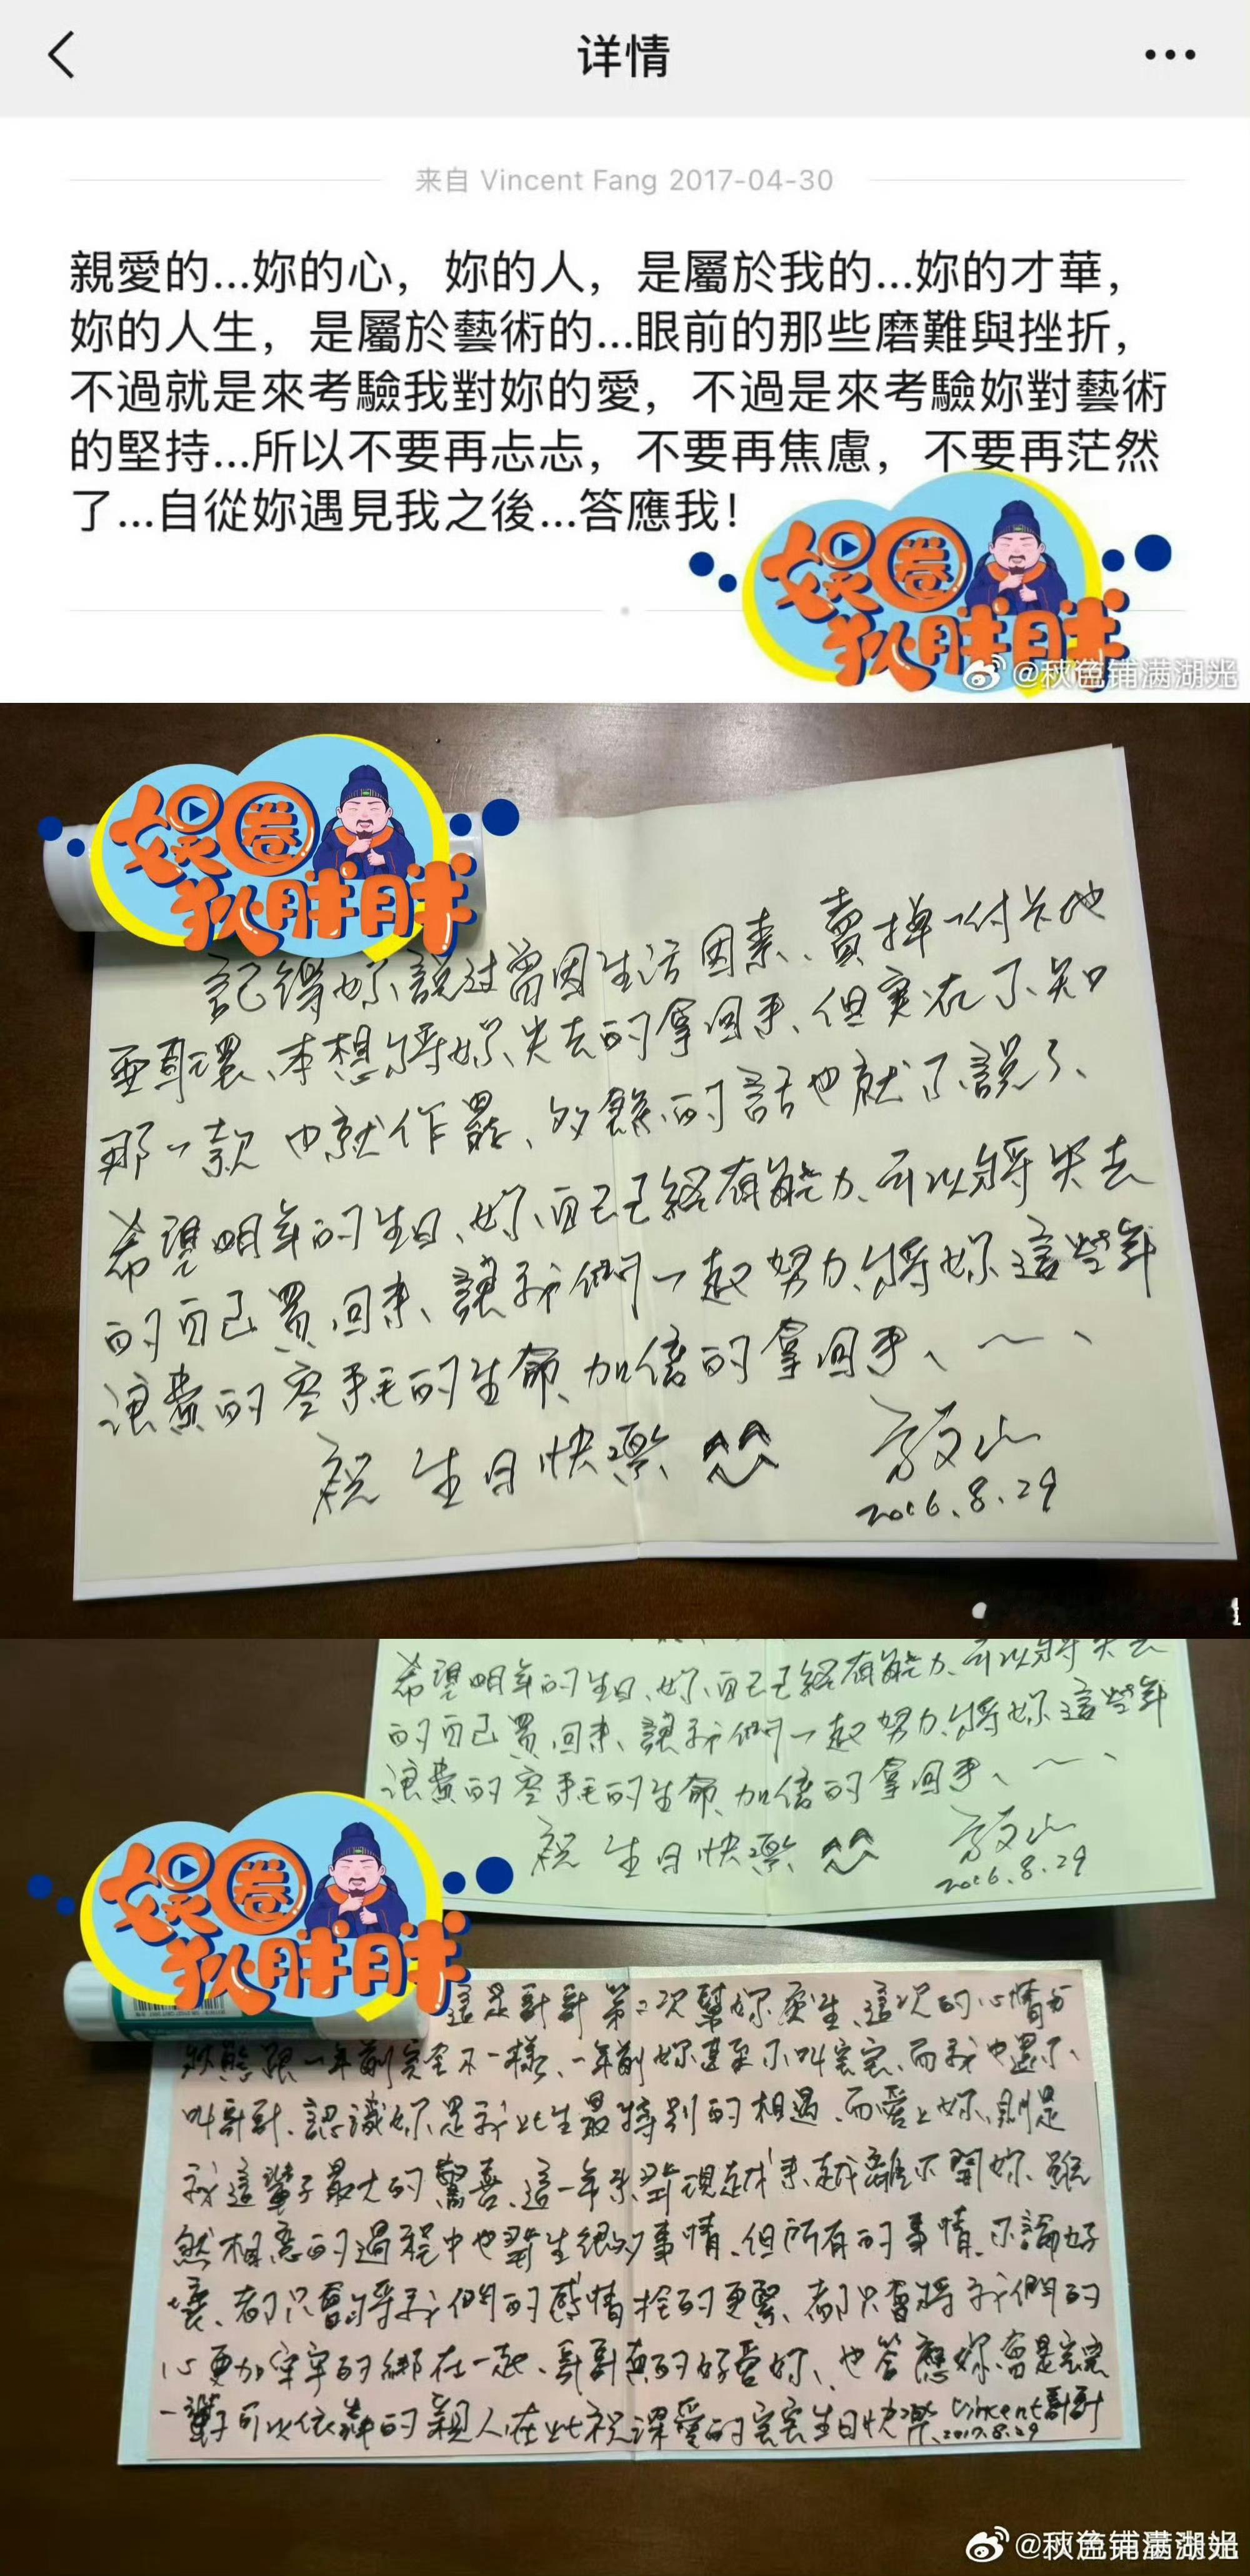 详情
来自 Vincent Fang 2017-04-30
親愛的...妳的心，妳的人，是屬於我的...妳的才華，
妳的人生，是屬於藝術的...眼前的那些磨難與挫折，
不過就是來考驗我對妳的愛，不過是來考驗妳對藝術
的堅持...所以不要再忐忑，不要再焦慮，不要再茫然
了...自從妳遇見我之後...答應我！
娱圈
狄胖胖
@秋色铺满湖光
娱圈
狄胖胖
記得妳說过曾因生活因素、賣掉一付卡地
亜耳環、本想將妳失去的拿回來、但實在不知
那一款 也就作罷、多餘的話也就不說了、
希望明年的生日、妳自己已經有能力、可以將失去
的自己買回來、讓我們一起努力、將妳這些年
浪費的 的生命、加倍的拿回來、~、
祝 生日快樂 ^^ 文山
2016.8.29
希望明年的生日、妳自己已經有能力、可以將失去
的自己買回來、讓我們一起努力、將妳這些年
浪費的 的生命、加倍的拿回來、~、
祝 生日快樂 ^^ 文山
2016.8.29
娱圈
狄胖胖
這是哥哥第二次幫妳慶生、這次的心情与
狀態跟一年前完全不一樣、一年前妳甚至不叫宝宝、而我也還不
叫哥哥、認識妳是我此生最特別的相遇、而愛上妳、則是
我這輩子最大的驚喜、這一年來發現越來越離不開妳、雖
然相戀的過程中也發生很多事情、但所有的事情、不論好
壞、都只會將我們的感情拴的更緊、都只會將我們的
心更加牢牢的綁在一起、哥哥真的好愛妳、也答應妳會是宝宝
一輩子可以依靠的親人、在此祝深愛的宝宝生日快樂、Vincent哥哥
2017.8.29
@秋色铺满湖光